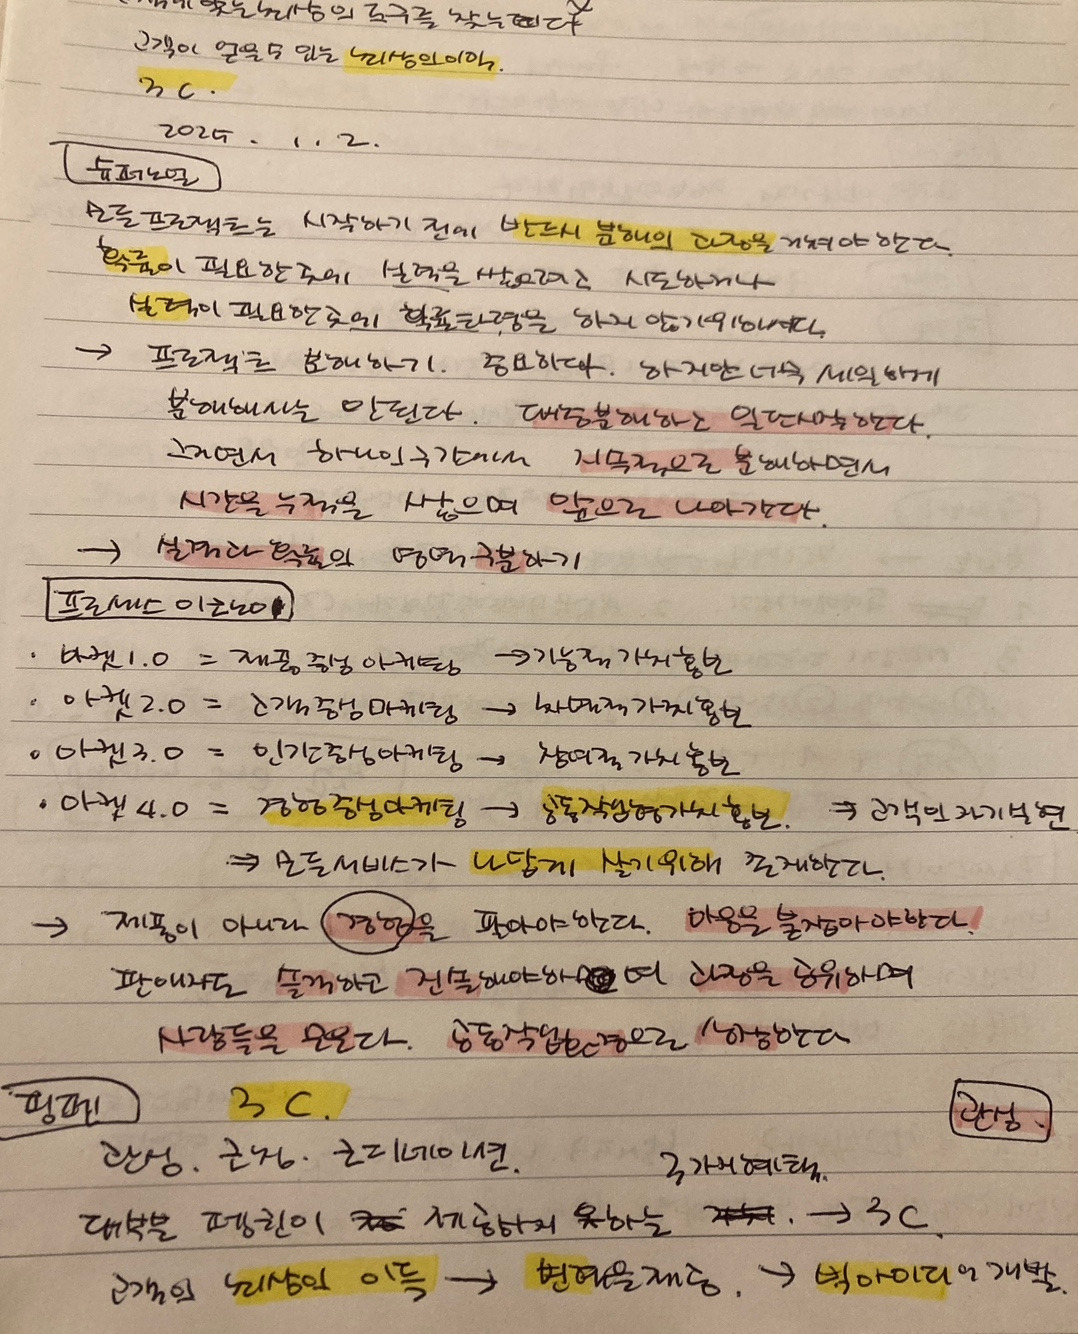 뇌상의 도구를 찾는다
고객이 얻을 수 있는 뇌상의 이익.
3C.
2025. 1. 2.
슈퍼노멀
모든 프로젝트는 시작하기 전에 반드시 분해의 과정을 거쳐야 한다.
확률이 필요한 곳에 실력을 쌓으려고 시도하거나
실력이 필요한 곳에 확률타령을 하지 않기 위해서다.
→ 프로젝트 분해하기. 중요하다. 하지만 너무 세밀하게
분해해서는 안된다. 대충분해하고 일단시작한다.
그러면서 하나의 구간에서 지속적으로 분해하면서
시간을 누적을 쌓으며 앞으로 나아간다.
→ 실력과 확률의 영역 구분하기
프로세스 이코노미
· 마켓 1.0 = 제품중심마케팅 → 기능적가치홍보
· 마켓 2.0 = 고객중심마케팅 → 차별적가치홍보
· 마켓 3.0 = 인간중심마케팅 → 참여적가치홍보
· 마켓 4.0 = 경험중심마케팅 → 공동작업형가치홍보. ⇒ 고객의 자기부현
⇒ 모든 서비스가 나답게 살기위해 존재한다.
→ 제품이 아니라 경험을 팔아야한다. 마음을 붙잡아야한다.
판매자도 솔직하고 진실해야하며 과정을 공유하며
사람들을 모은다. 공동작업환경으로 한다
핑펜 3C. 관성.
관성. 긍정. 코디네이션. 3가지 혜택.
대부분 펭귄이 제공하지 못하는 → 3C.
고객의 뇌상의 이득 → 변화을 제공. → 빅아이디어 개발.